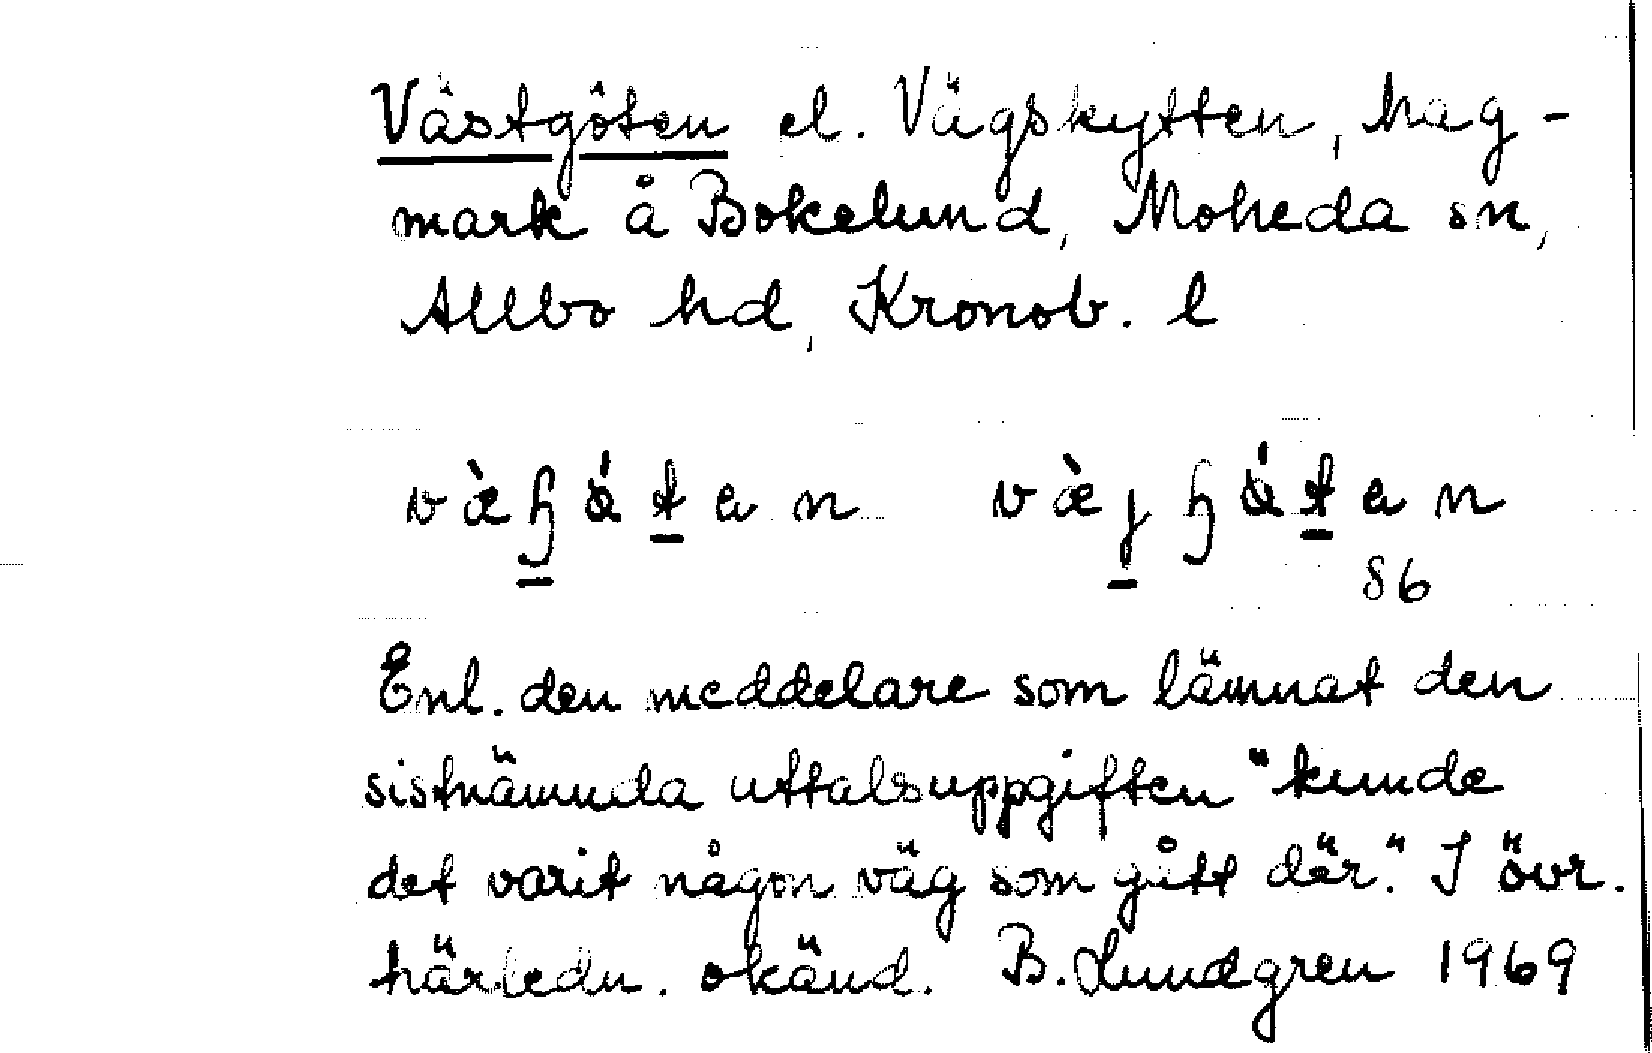 Västgöten el. Vägskytten, hag-
mark å Bokelund, Moheda sn,
Allbo hd, Kronob. l
86
Enl. den meddelare som lämnat den
sistnämnda uttalsuppgiften "kunde
det varit någon väg som gått där." I övr.
härledn. okänd. B. Lundgren 1969